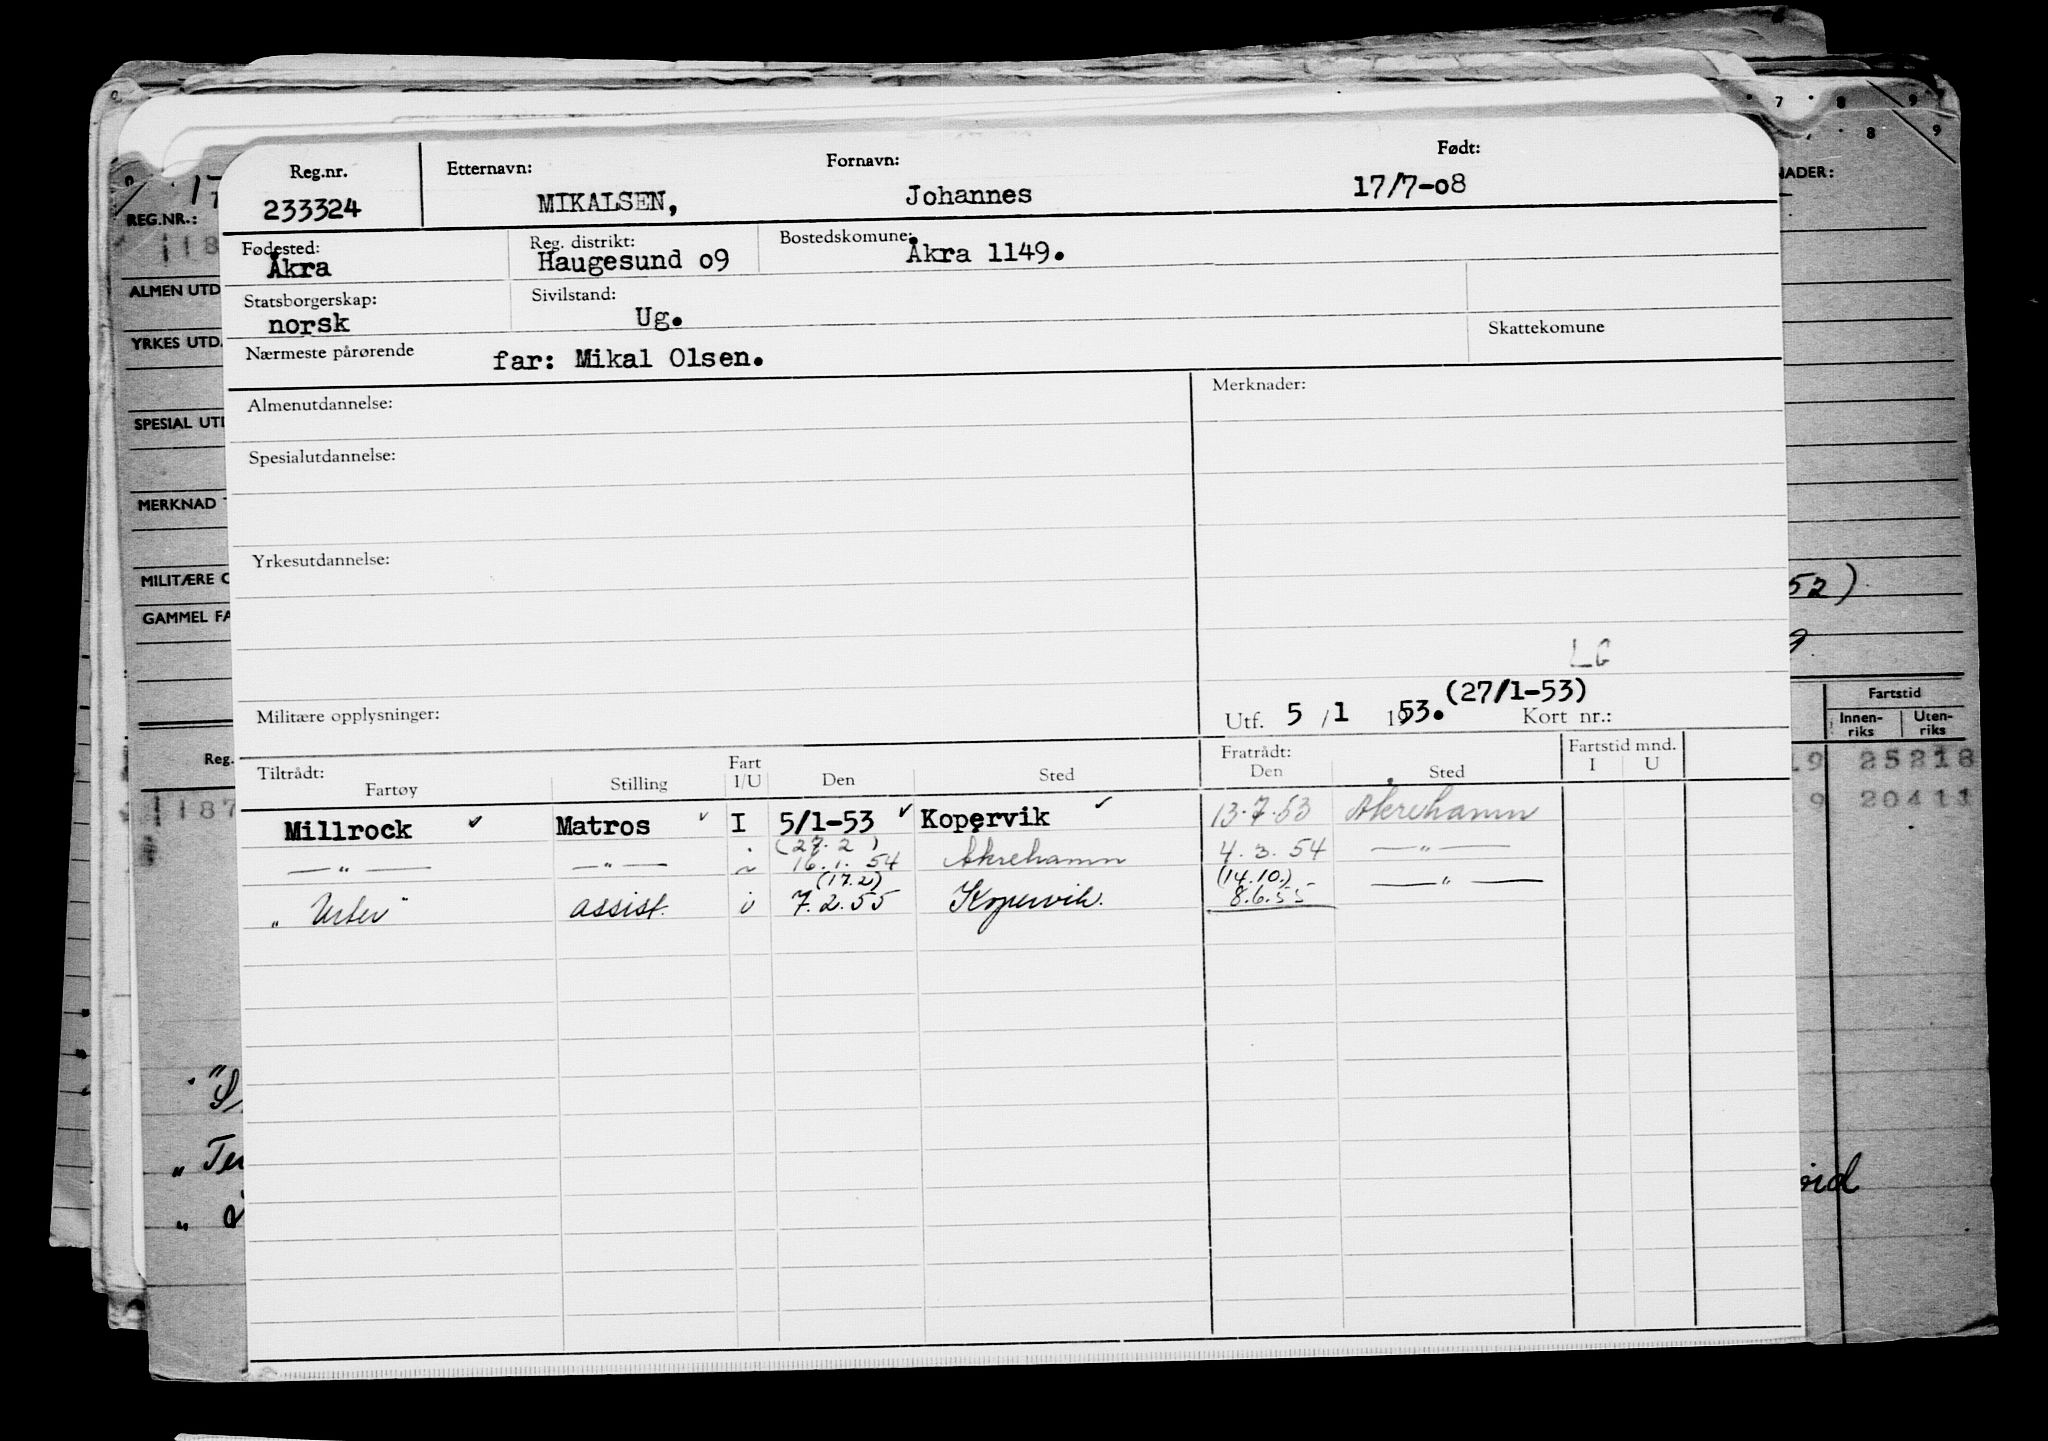 Reg.nr. Etternavn: Fornavn: Født:
233324 MIKALSEN, Johannes 17/7-08
Fødested: Reg. distrikt: Bostedskomune:
Åkra Haugesund 09 Åkra 1149.
Statsborgerskap: Sivilstand:
norsk Ug.
Skattekomune
Nærmeste pårørende far: Mikal Olsen.
Almenutdannelse: Merknader:
Spesialutdannelse:
Yrkesutdannelse:
LG
(27/1-53)
Militære opplysninger: Utf. 5 /1 1953. Kort nr.:
Tiltrådt: Fart Fratrådt: Fartstid mnd.
Fartøy Stilling I/U Den Sted Den Sted I U
Millrock ✓ Matros ✓ I 5/1-53 ✓ Kopervik ✓ 13.7.53 Åkrehamn
(27.2)
— " — — " — 16.1.54 Åkrehamn 4.3.54 — " —
(17.2) (14.10.)
assist. i 7.2.55 Kopervik. 8.6.55 — " —
REG.NR.:
ALMEN UTD
YRKES UTD.
SPESIAL UTD
MERKNAD
MILITÆRE O
GAMMEL FA
Reg.
187
NADER:
52)
Fartstid
Innen- Uten-
riks riks
19 25218
9 20411
7 8 9
8 9